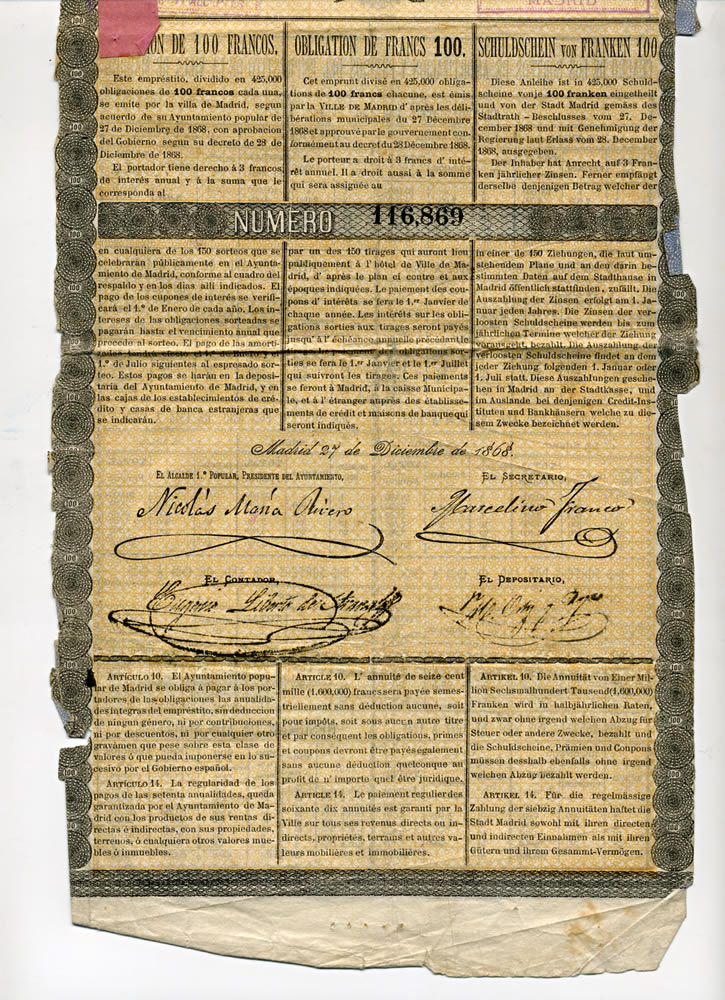 MADRID
ION DE 100 FRANCOS.
Este empréstito, dividido en 425,000
obligaciones de 100 francos cada una,
se emite por la villa de Madrid, segun
acuerdo de su Ayuntamiento popular de
27 de Diciembre de 1868, con aprobacion
del Gobierno segun su decreto de 28 de
Diciembre de 1868.
El portador tiene derecho á 3 francos
de interés anual y á la suma que le
corresponda al
OBLIGATION DE FRANCS 100.
Cet emprunt divisé en 425,000 obliga-
tions de 100 francs chacune, est émis
par la VILLE DE MADRID d' après les déli-
bérations municipales du 27 Décembre
1868 et approuvé par le gouvernement con-
formément au decret du 28 Décembre 1868.
Le porteur a droit à 3 francs d' inté-
rêt annuel. Il a droit aussi à la somme
qui sera assignée au
SCHULDSCHEIN VON FRANKEN 100
Diese Anleihe ist in 425,000 Schuld-
scheine vonje 100 franken eingetheilt
und von der Stadt Madrid gemäss des
Stadtrath-Beschlusses vom 27. De-
cember 1868 und mit Genehmigung der
Regierung laut Erlass vom 28. December
1868, ausgegeben.
Der Inhaber hat Anrecht auf 3 Fran-
ken jährlicher Zinsen. Ferner empfängt
derselbe denjenigen Betrag welcher der
NUMERO 116,869
en cualquiera de los 150 sorteos que se
celebrarán públicamente en el Ayunta-
miento de Madrid, conforme al cuadro del
respaldo y en los dias alli indicados. El
pago de los cupones de interés se verifi-
cará el 1.º de Enero de cada año. Los in-
tereses de las obligaciones sorteadas se
pagarán hasta el vencimiento anual que
precede al sorteo. El pago de las amorti-
1.º de Julio siguientes al espresado sor-
teo. Estos pagos se harán en la deposi-
taria del Ayuntamiento de Madrid, y en
las cajas de los establecimientos de cré-
dito y casas de banca estranjeras que
se indicarán.
par un des 150 tirages qui auront lieu
publiquement à l' hôtel de Ville de Ma-
drid, d' après le plan ci contre et aux
époques indiquées. Le paiement des cou-
pons d' intérêts se fera le 1.er Janvier de
chaque année. Les intérêts sur les obli-
gations sorties aux tirages seront payés
jusqu' à l' échéance annuelle précédant le
obligations sor-
ties se fera le 1.er Janvier et le 1.er Juillet
qui suivront les tirages. Ces paiements
se feront à Madrid, à la caisse Municipa-
le, et à l' étranger auprès des établisse-
ments de crédit et maisons de banque qui
seront indiqués.
in einer de 150 Ziehungen, die laut um-
stehendem Plane und an den darin be-
stimmten Daten auf dem Stadthause in
Madrid öffentlich stattfinden, zufällt. Die
Auszahlung der Zinsen erfolgt am 1. Ja-
nuar jeden Jahres. Die Zinsen der ver-
loosten Schuldscheine werden bis zum
jährlichen Termine welcher der Ziehung
vorausgeht, bezahlt. Die Auszahlung der
verloosten Schuldscheine findet an dem
jeder Ziehung folgenden 1. Januar oder
1. Juli statt. Diese Auszahlungen gesche-
hen in Madrid an der Stadtkasse, und
im Auslande bei denjenigen Credit-Ins-
tituten und Bankhäusern welche zu die-
sem Zwecke bezeichnet werden.
Madrid 27 de Diciembre de 1868.
EL ALCALDE 1.º POPULAR, PRESIDENTE DEL AYUNTAMIENTO,
EL SECRETARIO,
Nicolás María Rivero
Marcelino Franco
EL CONTADOR,
EL DEPOSITARIO,
Eugenio
ARTÍCULO 10. El Ayuntamiento popu-
lar de Madrid se obliga á pagar á los por-
tadores de las obligaciones las anualida-
des íntegras del empréstito, sin deduccion
de ningun género, ni por contribuciones,
ni por descuentos, ni por cualquier otro
gravámen que pese sobre esta clase de
valores ó que pueda imponerse en lo su-
cesivo por el Gobierno español.
ARTÍCULO 14. La regularidad de los
pagos de las setenta anualidades, queda
garantizada por el Ayuntamiento de Ma-
drid con los productos de sus rentas di-
rectas é indirectas, con sus propiedades,
terrenos, ó cualquiera otros valores mue-
bles ó inmuebles.
ARTICLE 10. L' annuité de seize cent
mille (1,600,000) francs sera payée semes-
triellement sans déduction aucune, soit
pour impôts, soit sous aucun autre titre
et par conséquent les obligations, primes
et coupons devront être payés également
sans aucune déduction quelconque au
profit de n' importe quel être juridique.
ARTICLE 14. Le paiement regulier des
soixante dix annuités est garanti par la
Ville sur tous ses revenus directs ou in-
directs, propriétés, terrains et autres va-
leurs mobilières et immobilières.
ARTIKEL 10. Die Annuität von Einer Mil-
lion Sechsmalhundert Tausend (1,600,000)
Franken wird in halbjährlichen Raten,
und zwar ohne irgend welchen Abzug für
Steuer oder andere Zwecke, bezahlt und
die Schuldscheine, Prämien und Coupons
müssen desshalb ebenfalls ohne irgend
welchen Abzug bezahlt werden.
ARTIKEL 14. Für die regelmässige
Zahlung der siebzig Annuitäten haftet die
Stadt Madrid sowohl mit ihren directen
und indirecten Einnahmen als mit ihren
Gütern und ihrem Gesammt-Vermögen.